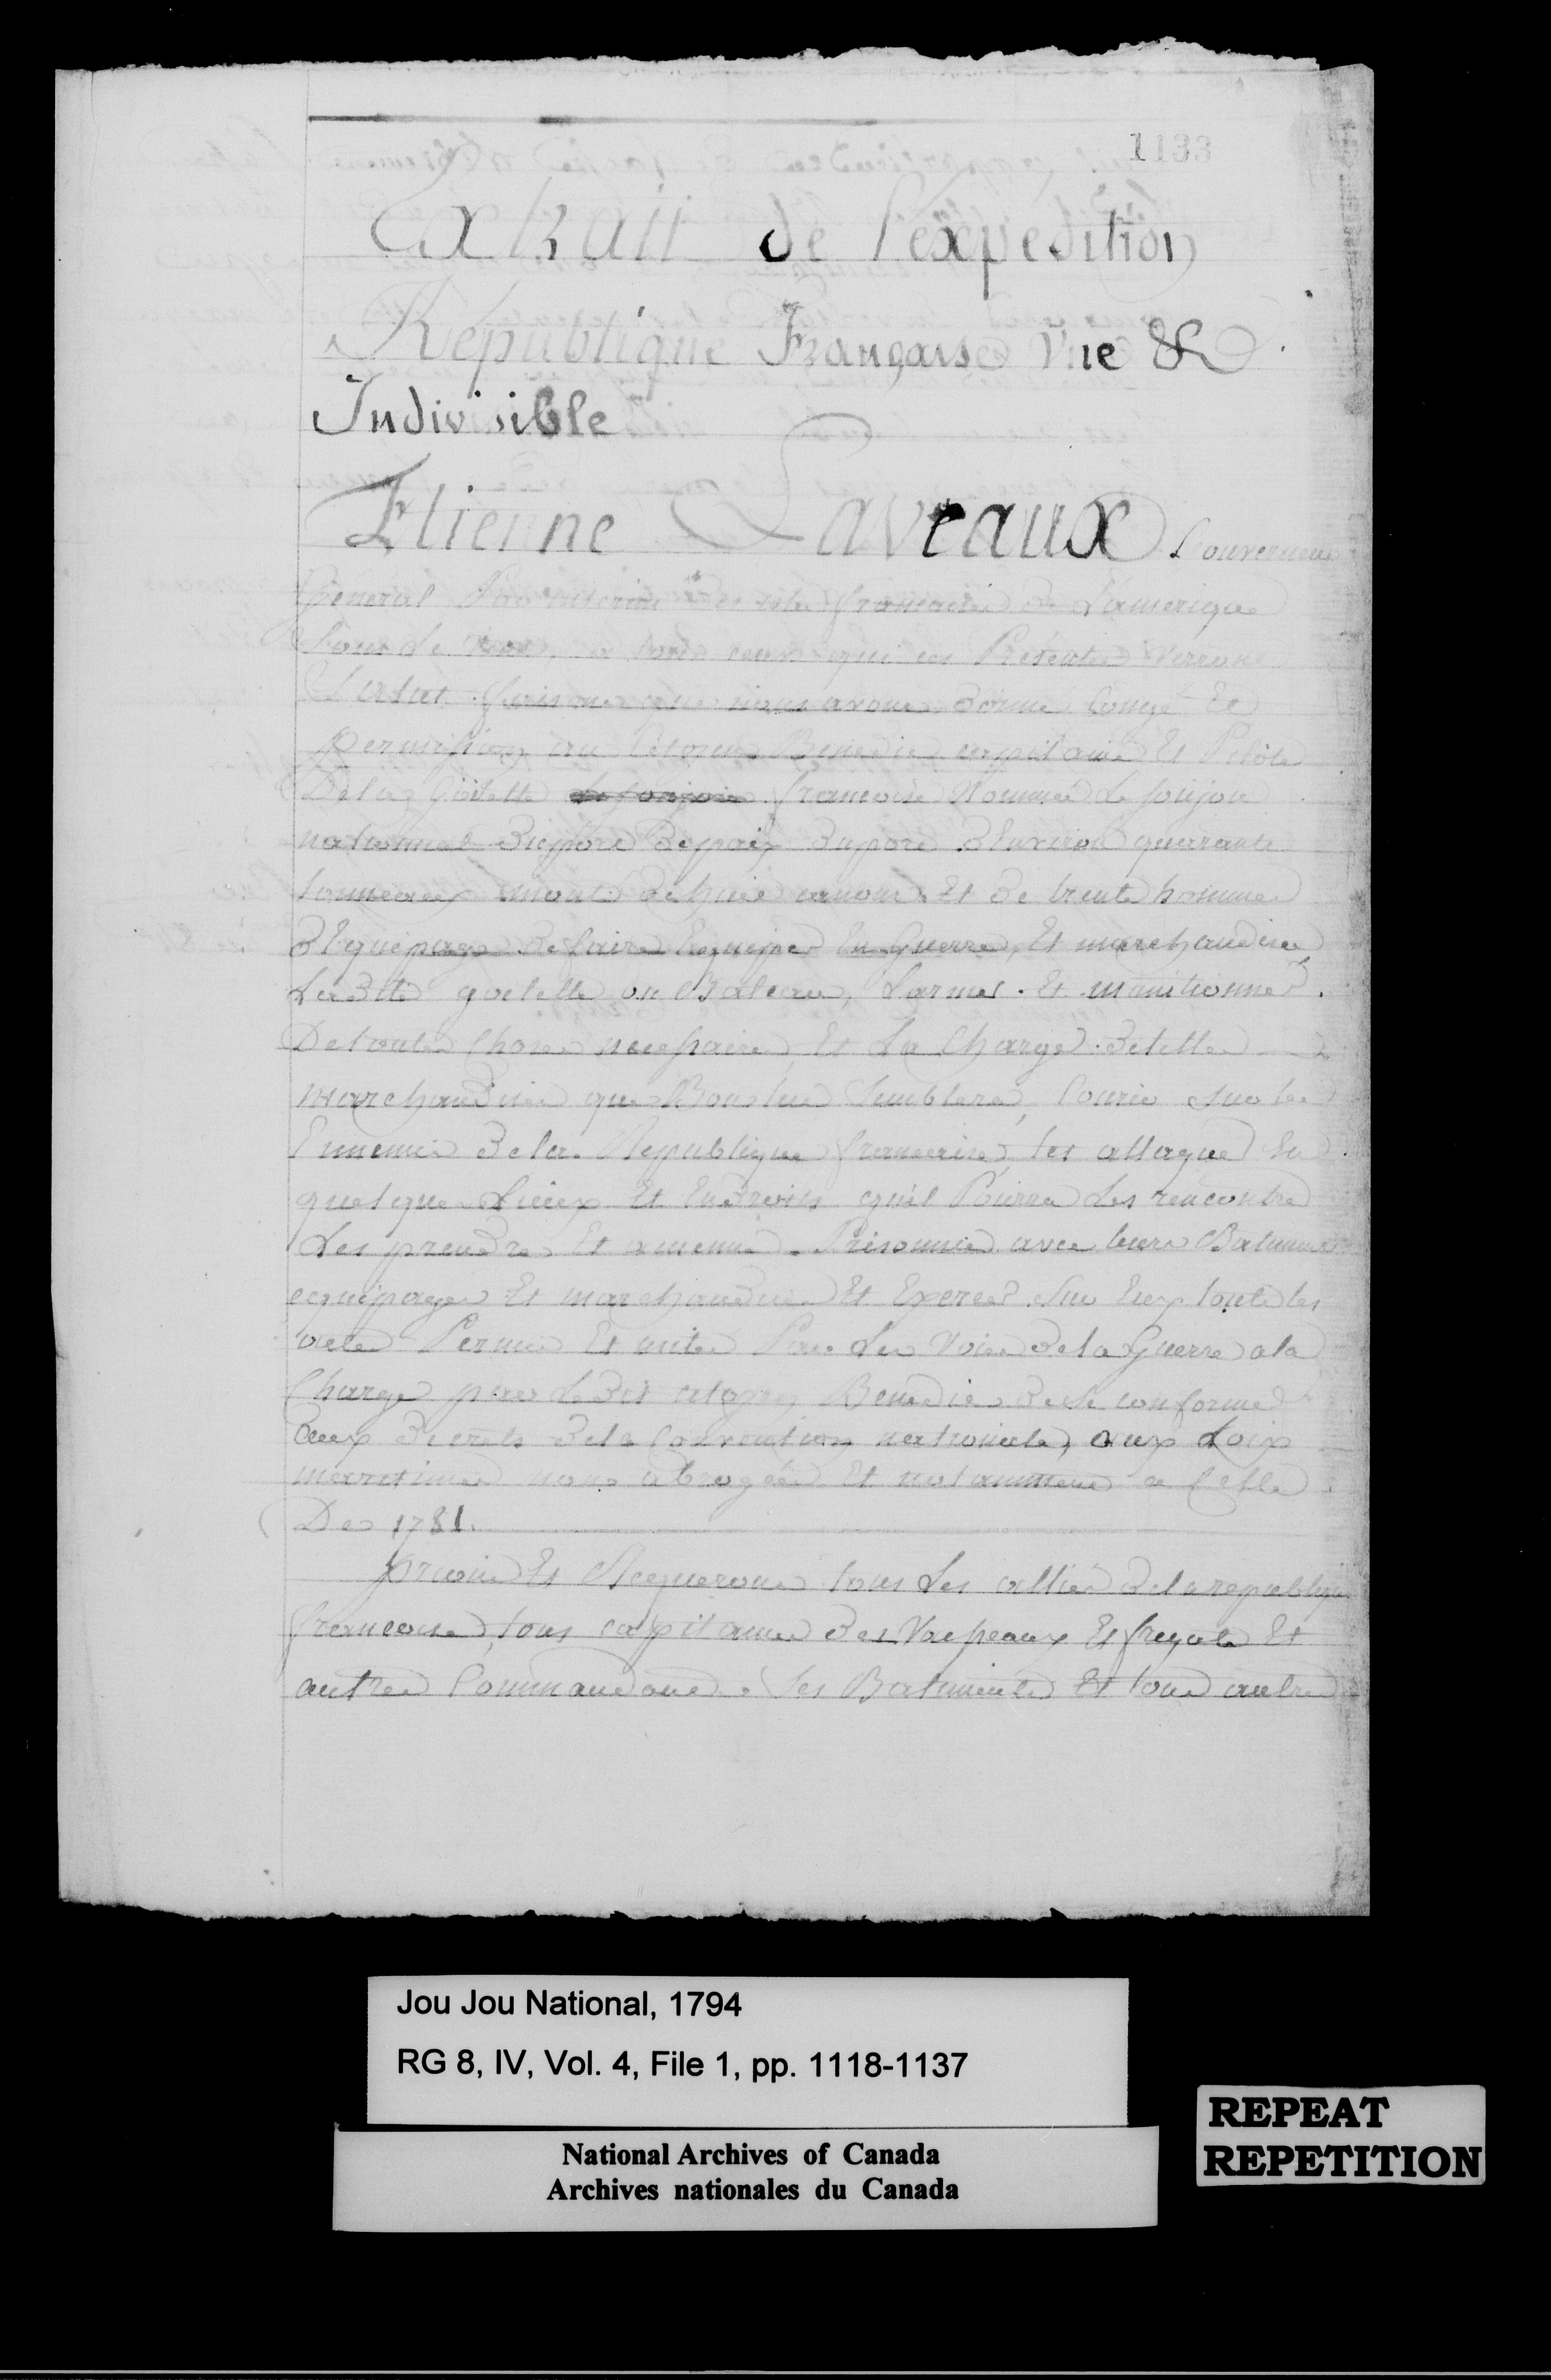 1133
Extrait de l'expedition
Republique Française Une &
Indivisible
Etienne Laveaux Gouverneur
General Par interim des isles francaise de Lamerique
Sous le vent, a tous ceux qui ces Présente Verrons
Salut. faisons que nous avons donné Congé et
permission au Citoyen Benedic capitaine Et Pilote
De la Goëlette francoise Nommée le Joujou
nationnal du port de paix du port d'Environ quarante
tonneaux monté de huit canons Et de trente hommes
d'Equipage de faire Equiper En Guerre, Et marchandise
La dite goelette ou Bateau, Larmer. Et munitionner.
De toute Chose necessaire, Et La Charger de telle
marchandise que Bon lui Semblera, Courir sur les
Ennemis de la Republique francaise, les attaquer En
quelque Lieux Et Endroits qu'il Pourra les rencontre
Les prendre Et amenné. Prisonnié avec leurs Batiments
equipage Et marchandise Et Exercer sur Eux toute les
acte Permis Et usité Par les Voies de la Guerre a la
Charge par Le dit citoyen Benedic de se conformer
aux decrets de la Convention nationale, aux Loix
maritime non abrogées Et notamment a Celle
De 1781.
prions Et Requerons tous les alliés de la republique
francoise, tous capitaine des Vaisseaux Et fregate Et
autre Commandant. Ses Batiments Et tous autre
Jou Jou National, 1794
RG 8, IV, Vol. 4, File 1, pp. 1118-1137
National Archives of Canada
Archives nationales du Canada
REPEAT
REPETITION